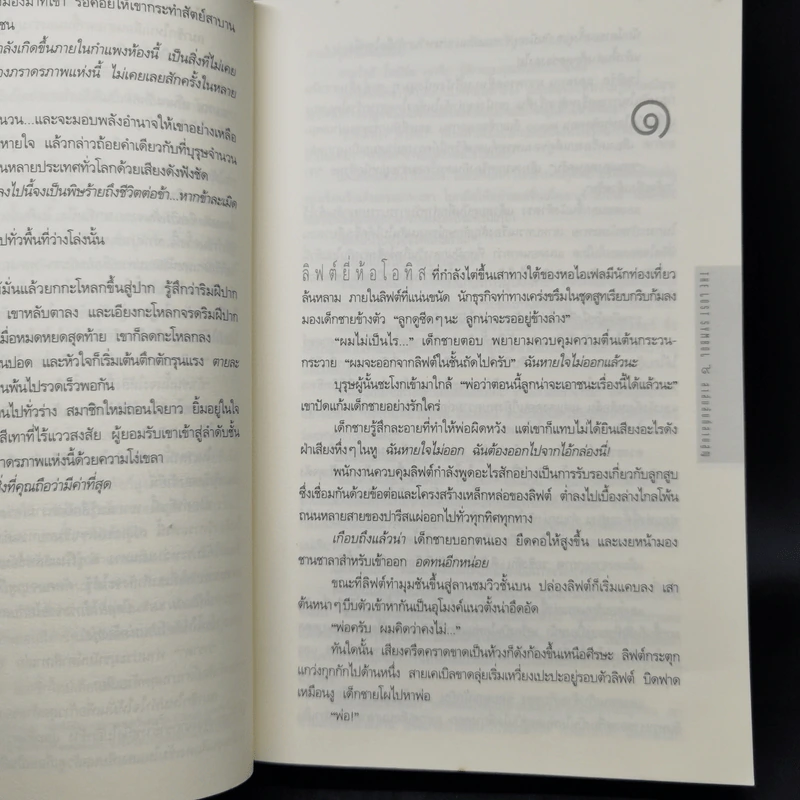 นมองมาที่เขา รอคอยให้เขากระทำสัตย์สาบาน
ชน
ำลังเกิดขึ้นภายในกำแพงห้องนี้ เป็นสิ่งที่ไม่เคย
องภราดรภาพแห่งนี้ ไม่เคยเลยสักครั้งในหลาย
ำนวน...และจะมอบพลังอำนาจให้เขาอย่างเหลือ
หายใจ แล้วกล่าวถ้อยคำเดียวกับที่บุรุษจำนวน
นหลายประเทศทั่วโลกด้วยเสียงดังฟังชัด
ลงไปนี้จงเป็นพิษร้ายถึงชีวิตต่อข้า...หากข้าละเมิด
ปทั่วพื้นที่ว่างโล่งนั้น
ห้มั่นแล้วยกกะโหลกขึ้นสู่ปาก รู้สึกว่าริมฝีปาก
เขาหลับตาลง และเอียงกะโหลกจรดริมฝีปาก
มื่อหมดหยดสุดท้าย เขาก็ลดกะโหลกลง
นปอด และหัวใจก็เริ่มเต้นตึกตักรุนแรง ตายละ
นพ้นไปรวดเร็วพอกัน
นไปทั่วร่าง สมาชิกใหม่ถอนใจยาว ยิ้มอยู่ในใจ
สีเทาที่ไร้แววสงสัย ผู้ยอมรับเขาเข้าสู่ลำดับชั้น
าดรภาพแห่งนี้ด้วยความโง่เขลา
ิ่งที่คุณถือว่ามีค่าที่สุด
๑
ลิฟต์ยี่ห้อโอทิส ที่กำลังไต่ขึ้นเสาทางใต้ของหอไอเฟลมีนักท่องเที่ยว
ล้นหลาม ภายในลิฟต์ที่แน่นขนัด นักธุรกิจท่าทางเคร่งขรึมในชุดสูทเรียบกริบก้มลง
มองเด็กชายข้างตัว “ลูกดูซีดๆ นะ ลูกน่าจะรออยู่ข้างล่าง”
“ผมไม่เป็นไร...” เด็กชายตอบ พยายามควบคุมความตื่นเต้นกระวน-
กระวาย “ผมจะออกจากลิฟต์ในชั้นถัดไปครับ” ฉันหายใจไม่ออกแล้วนะ
บุรุษผู้นั้นชะโงกเข้ามาใกล้ “พ่อว่าตอนนี้ลูกน่าจะเอาชนะเรื่องนี้ได้แล้วนะ”
เขาปัดแก้มเด็กชายอย่างรักใคร่
เด็กชายรู้สึกละอายที่ทำให้พ่อผิดหวัง แต่เขาก็แทบไม่ได้ยินเสียงอะไรดัง
ฝ่าเสียงหึ่งๆ ในหู ฉันหายใจไม่ออก ฉันต้องออกไปจากไอ้กล่องนี่!
พนักงานควบคุมลิฟต์กำลังพูดอะไรสักอย่างเป็นการรับรองเกี่ยวกับลูกสูบ
ซึ่งเชื่อมกันด้วยข้อต่อและโครงสร้างเหล็กหล่อของลิฟต์ ต่ำลงไปเบื้องล่างไกลโพ้น
ถนนหลายสายของปารีสแผ่ออกไปทั่วทุกทิศทุกทาง
เกือบถึงแล้วน่า เด็กชายบอกตนเอง ยืดคอให้สูงขึ้น และเงยหน้ามอง
ชานชาลาสำหรับเข้าออก อดทนอีกหน่อย
ขณะที่ลิฟต์ทำมุมชันขึ้นสู่ลานชมวิวชั้นบน ปล่องลิฟต์ก็เริ่มแคบลง เสา
ต้นหนาๆ บีบตัวเข้าหากันเป็นอุโมงค์แนวตั้งน่าอึดอัด
“พ่อครับ ผมคิดว่าคงไม่...”
ทันใดนั้น เสียงครืดคราดขาดเป็นห้วงก็ดังก้องขึ้นเหนือศีรษะ ลิฟต์กระตุก
แกว่งกุกกักไปด้านหนึ่ง สายเคเบิลขาดลุ่ยเริ่มเหวี่ยงเปะปะอยู่รอบตัวลิฟต์ บิดฟาด
เหมือนงู เด็กชายโผไปหาพ่อ
“พ่อ!”
THE LOST SYMBOL